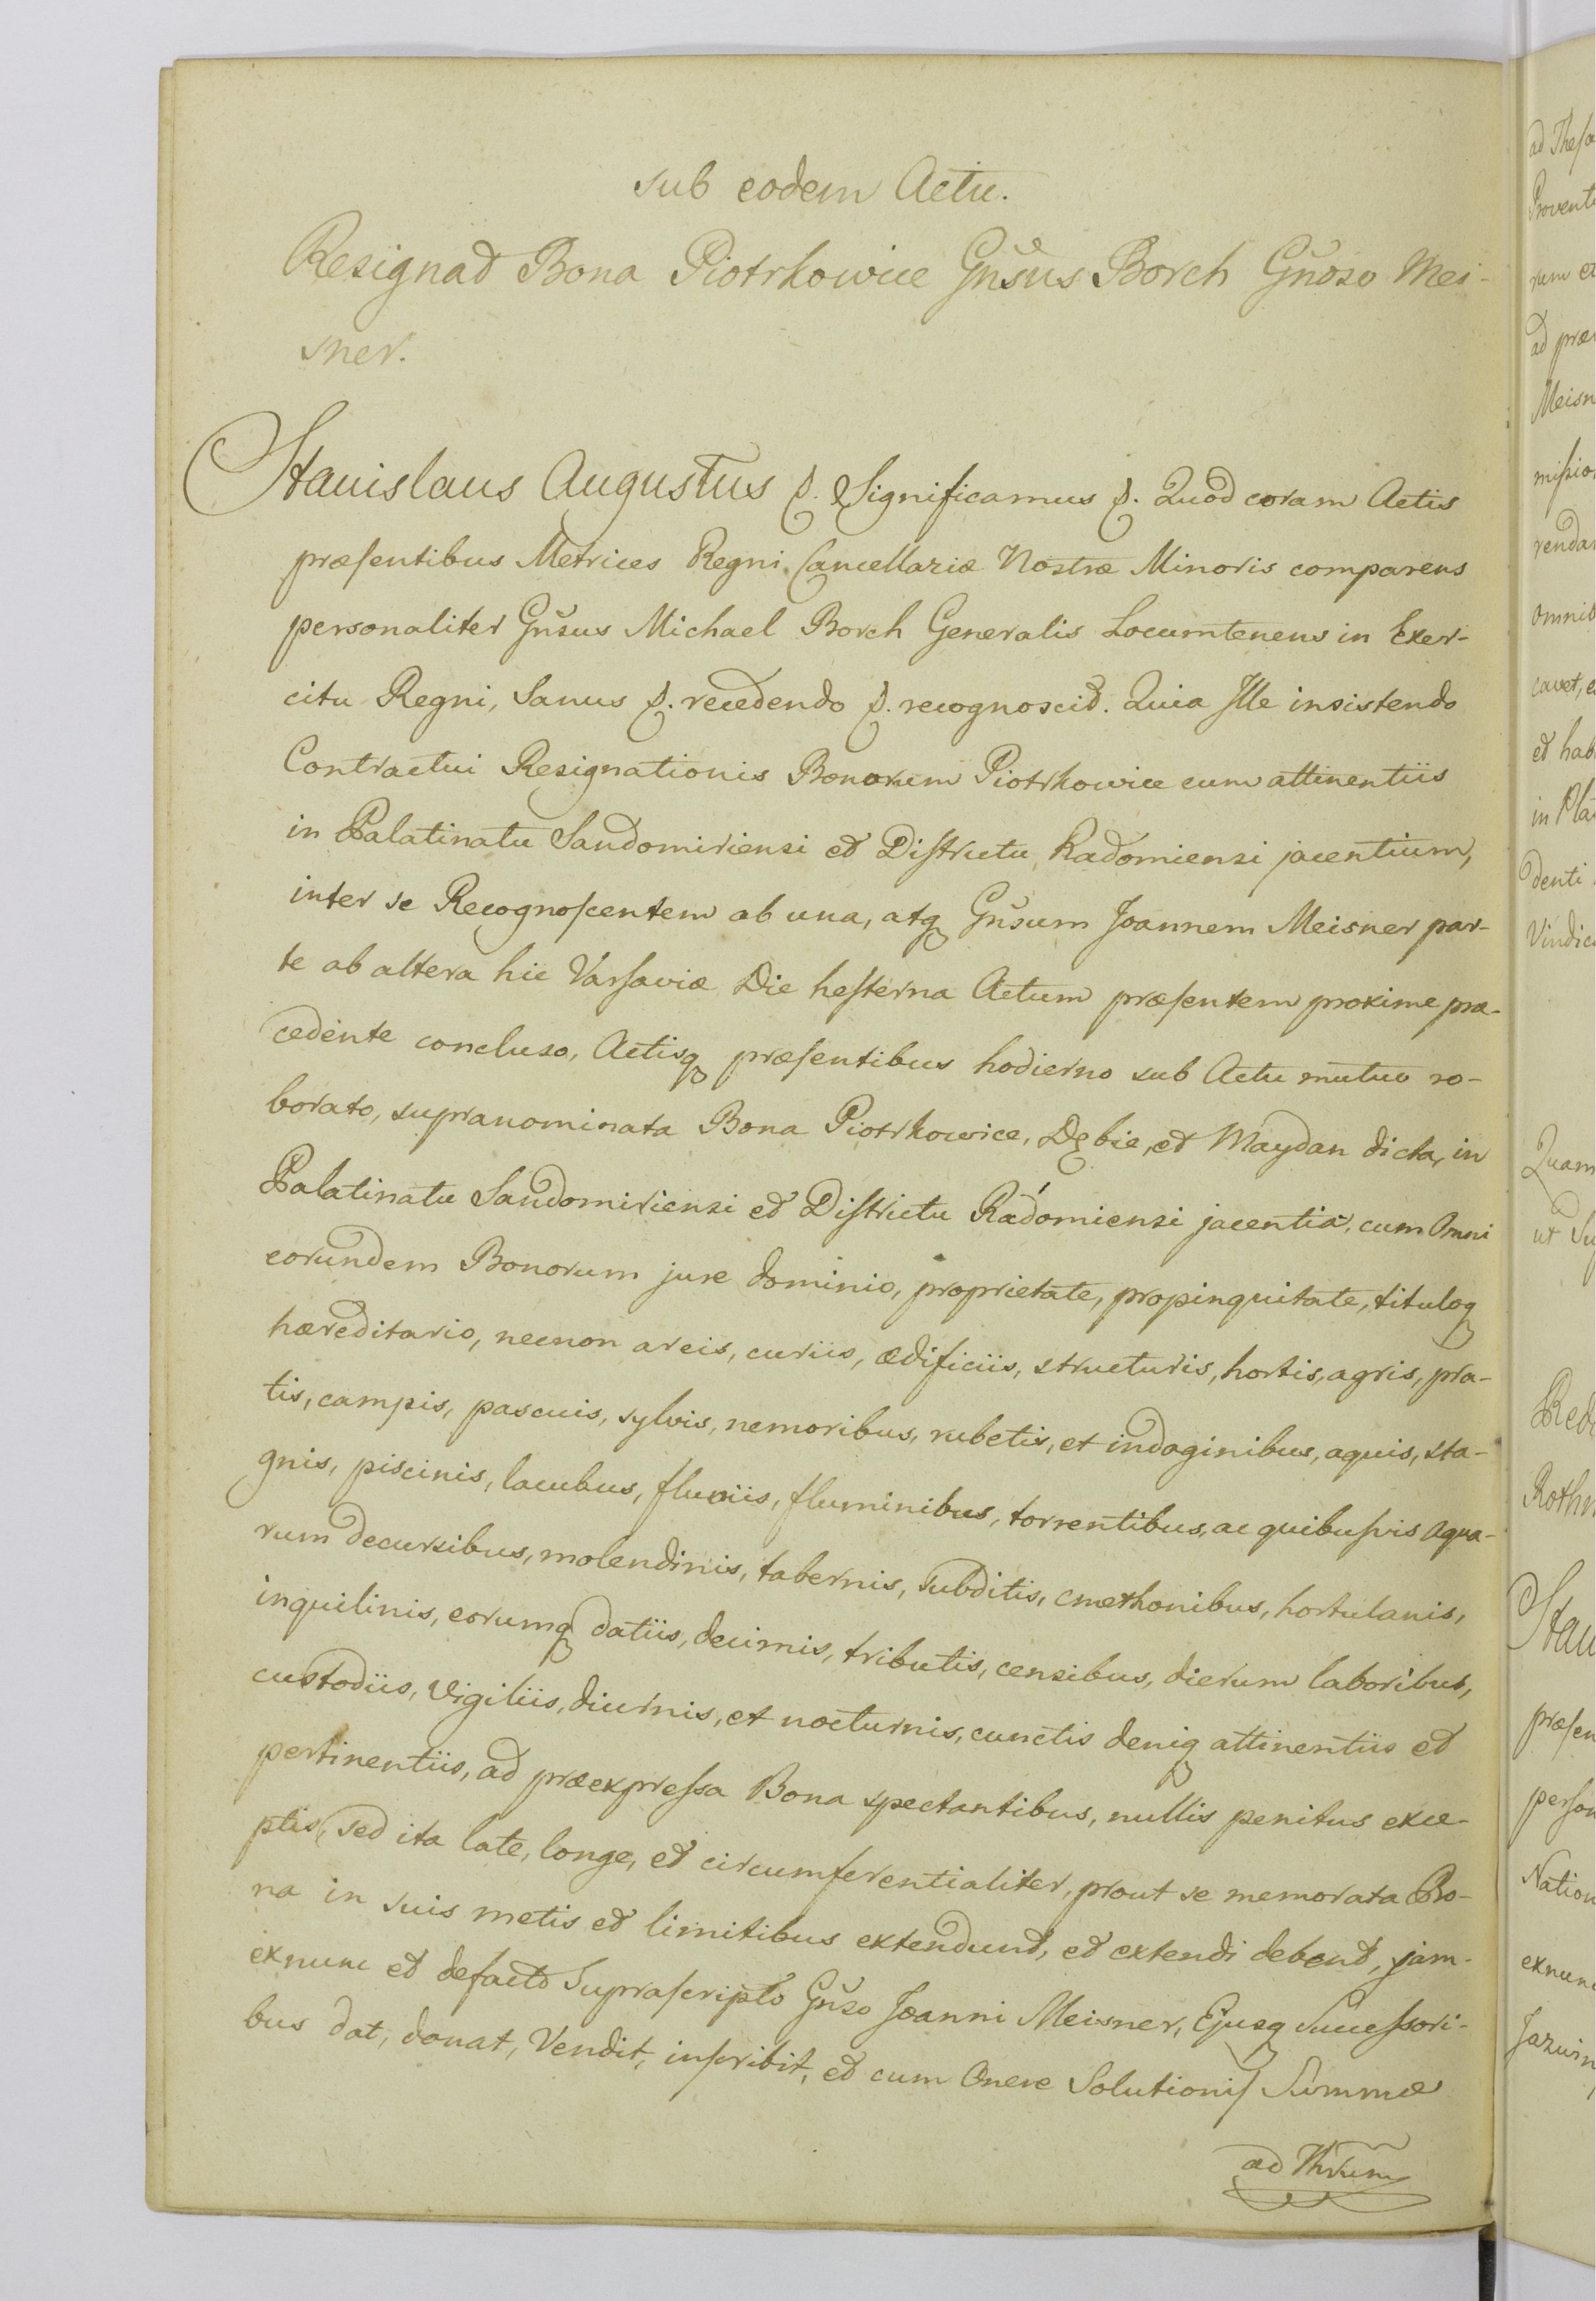 sub eodem Actu.
Resignat Bona Piotrkowice Gnsus Borch Gnoso Mei-
sner.
Stanislaus Augustus &. Significamus &. Quod coram Actis
præsentibus Metrices Regni Cancellariæ Nostræ Minoris comparens
personaliter Gnsus Michael Borch Generalis Locumtenens in Exer-
citu Regni, Sanus &. recedendo &. recognoscit. Quia Ille insistendo
Contractui Resignationis Bonorum Piotrkowice cum attinentiis
in Palatinatu Sandomiriensi et Districtu Radomiensi jacentium,
inter se Recognoscentem ab una, atq Gnsum Joannem Meisner par-
te ab altera hic Varsaviæ Die hesterna Actum præsentem proxime præ-
cedente concluso, Actisq præsentibus hodierno sub Actu mutuo ro-
borato, supranominata Bona Piotrkowice, Dębie, et Maydan dicta, in
Palatinatu Sandomiriensi et Districtu Radomiensi jacentia, cum Omni
eorundem Bonorum jure dominio, proprietate, propinquitate, tituloq
hæreditario, necnon areis, curiis, ædificiis, structuris, hortis, agris, pra-
tis, campis, pascuis, sylvis, nemoribus, rubetis, et indaginibus, aquis, sta-
gnis, piscinis, lacubus, fluviis, fluminibus, torrentibus, ac quibusvis aqua-
rum decursibus, molendinis, tabernis, Subditis, cmethonibus, hortulanis,
inquilinis, eorumq datiis, decimis, tributis, censibus, dierum laboribus,
custodiis, Vigiliis, diurnis, et nocturnis, cunctis deniq attinentiis et
pertinentiis, ad præexpressa Bona spectantibus, nullis penitus exce-
ptis, sed ita late, longe, et circumferentialiter, prout se memorata Bo-
na in suis metis et limitibus extendunt, et extendi debent, jam-
exnunc et defacto Suprascripto Gnso Joanni Meisner, Ejusq Successori-
bus dat, donat, Vendit, inscribit, et cum Onere Solutionis Summæ
ad Thrum